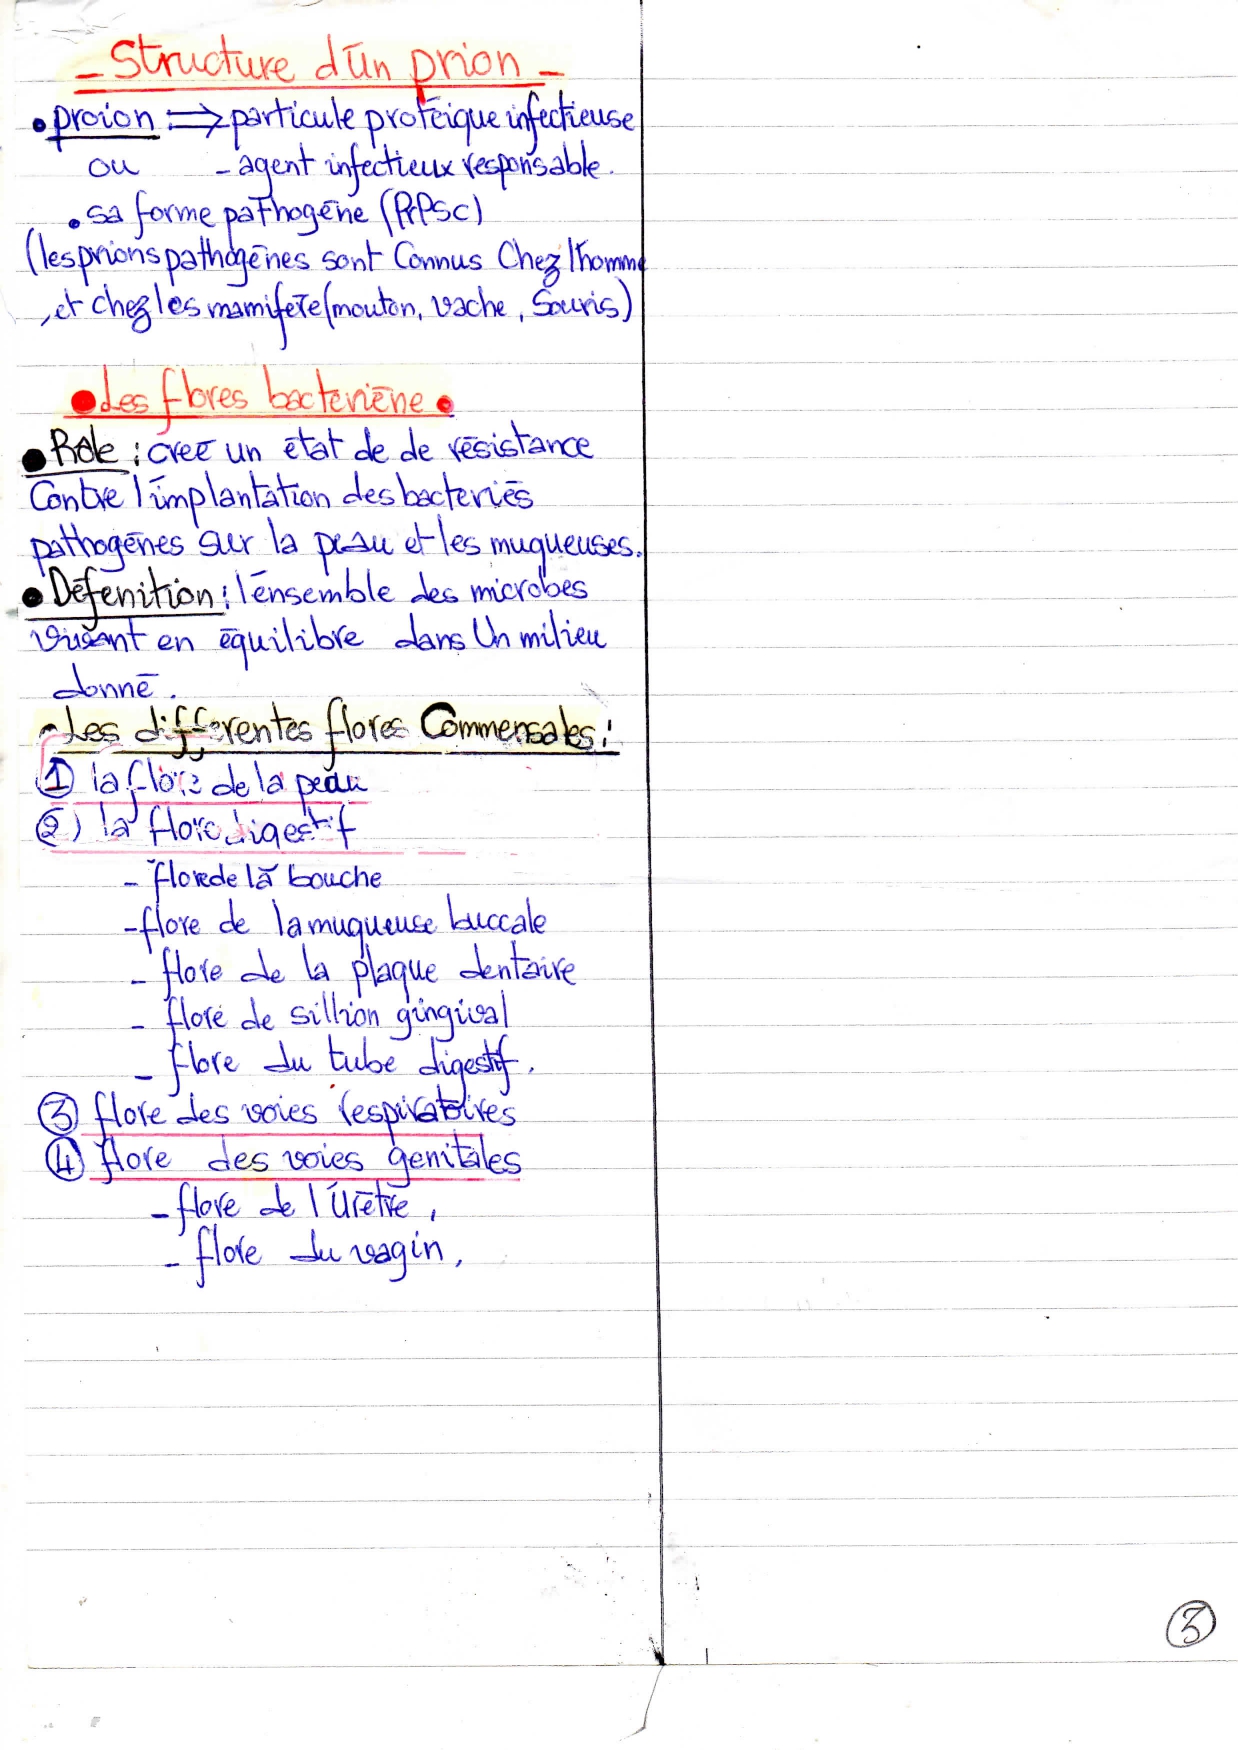 - Structure d'un prion -
• proion : ⇒ particule protéique infectieuse
ou - agent infectieux responsable.
• sa forme pathogène (PrPSc)
(les prions pathogènes sont Connus Chez l'homme
, et chez les mamifère (mouton, vache, Souris)
• Les flores bacteriène •
• Rôle : creé un état de de résistance
Contre l'implantation des bacteriés
pathogènes sur la peau et les muqueuses.
• Défenition : l'énsemble des microbes
vivant en équilibre dans Un milieu
donné.
- Les différentes flores Commensales :
① la flore de la peau
②) la flore digestif
- flore de la bouche
- flore de la muqueuse buccale
- flore de la plaque dentaire
- flore de sillion gingival
- flore du tube digestif.
③ flore des voies respiratoires
④ flore des voies genitales
- flore de l'Urètre,
- flore du vagin,
③